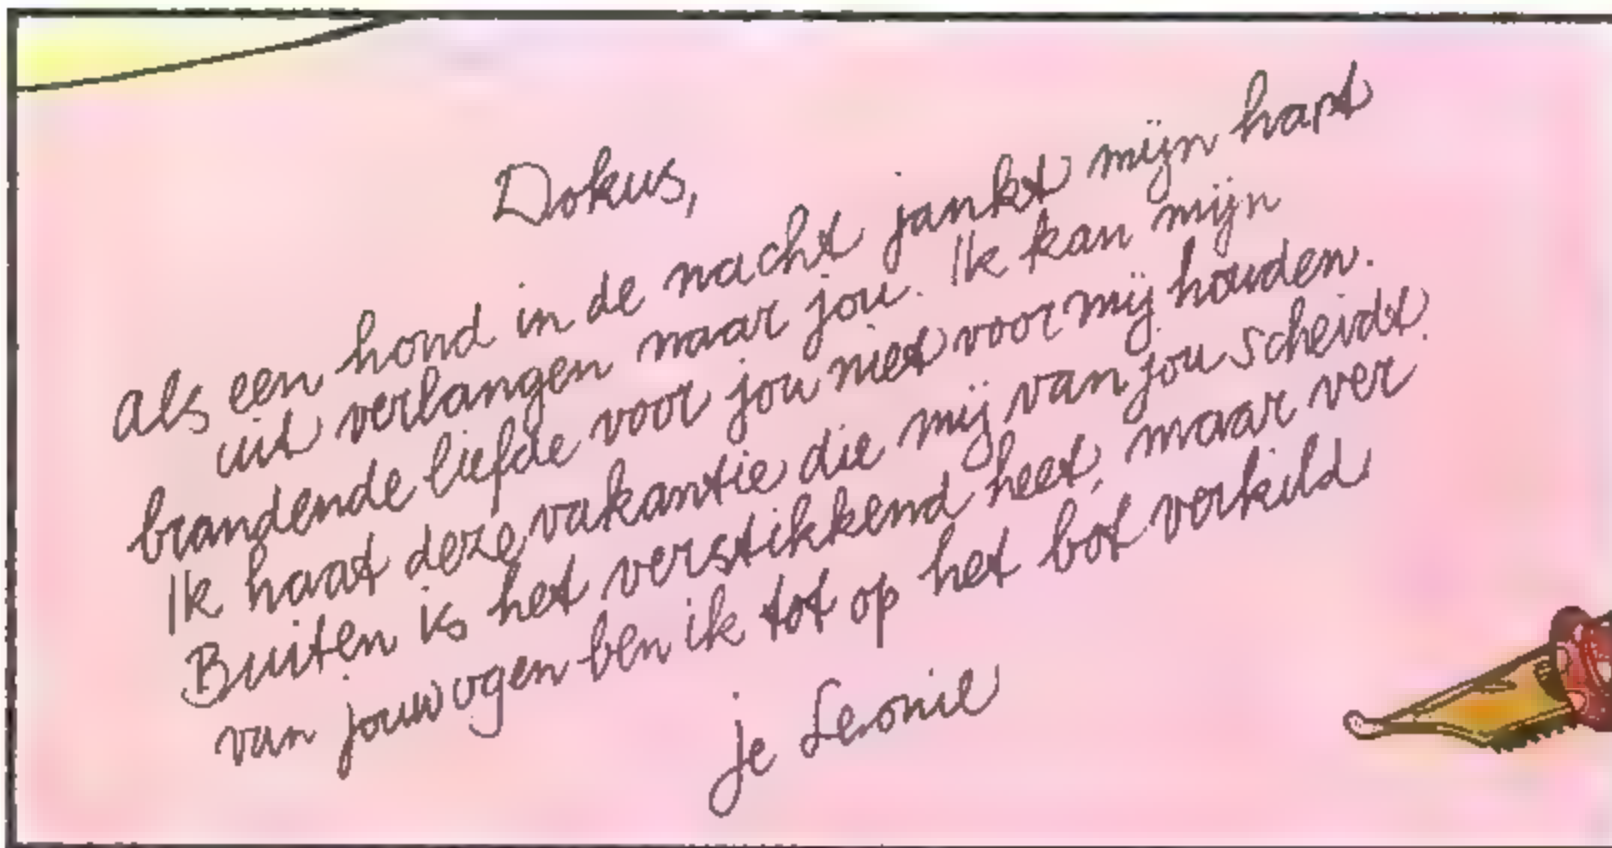 Dokus,
Als een hond in de nacht jankt mijn hart
uit verlangen naar jou. Ik kan mijn
brandende liefde voor jou niet voor mij houden.
Ik haat deze vakantie die mij van jou scheidt.
Buiten is het verstikkend heet, maar ver
van jouw ogen ben ik tot op het bot verkild
je Leonie